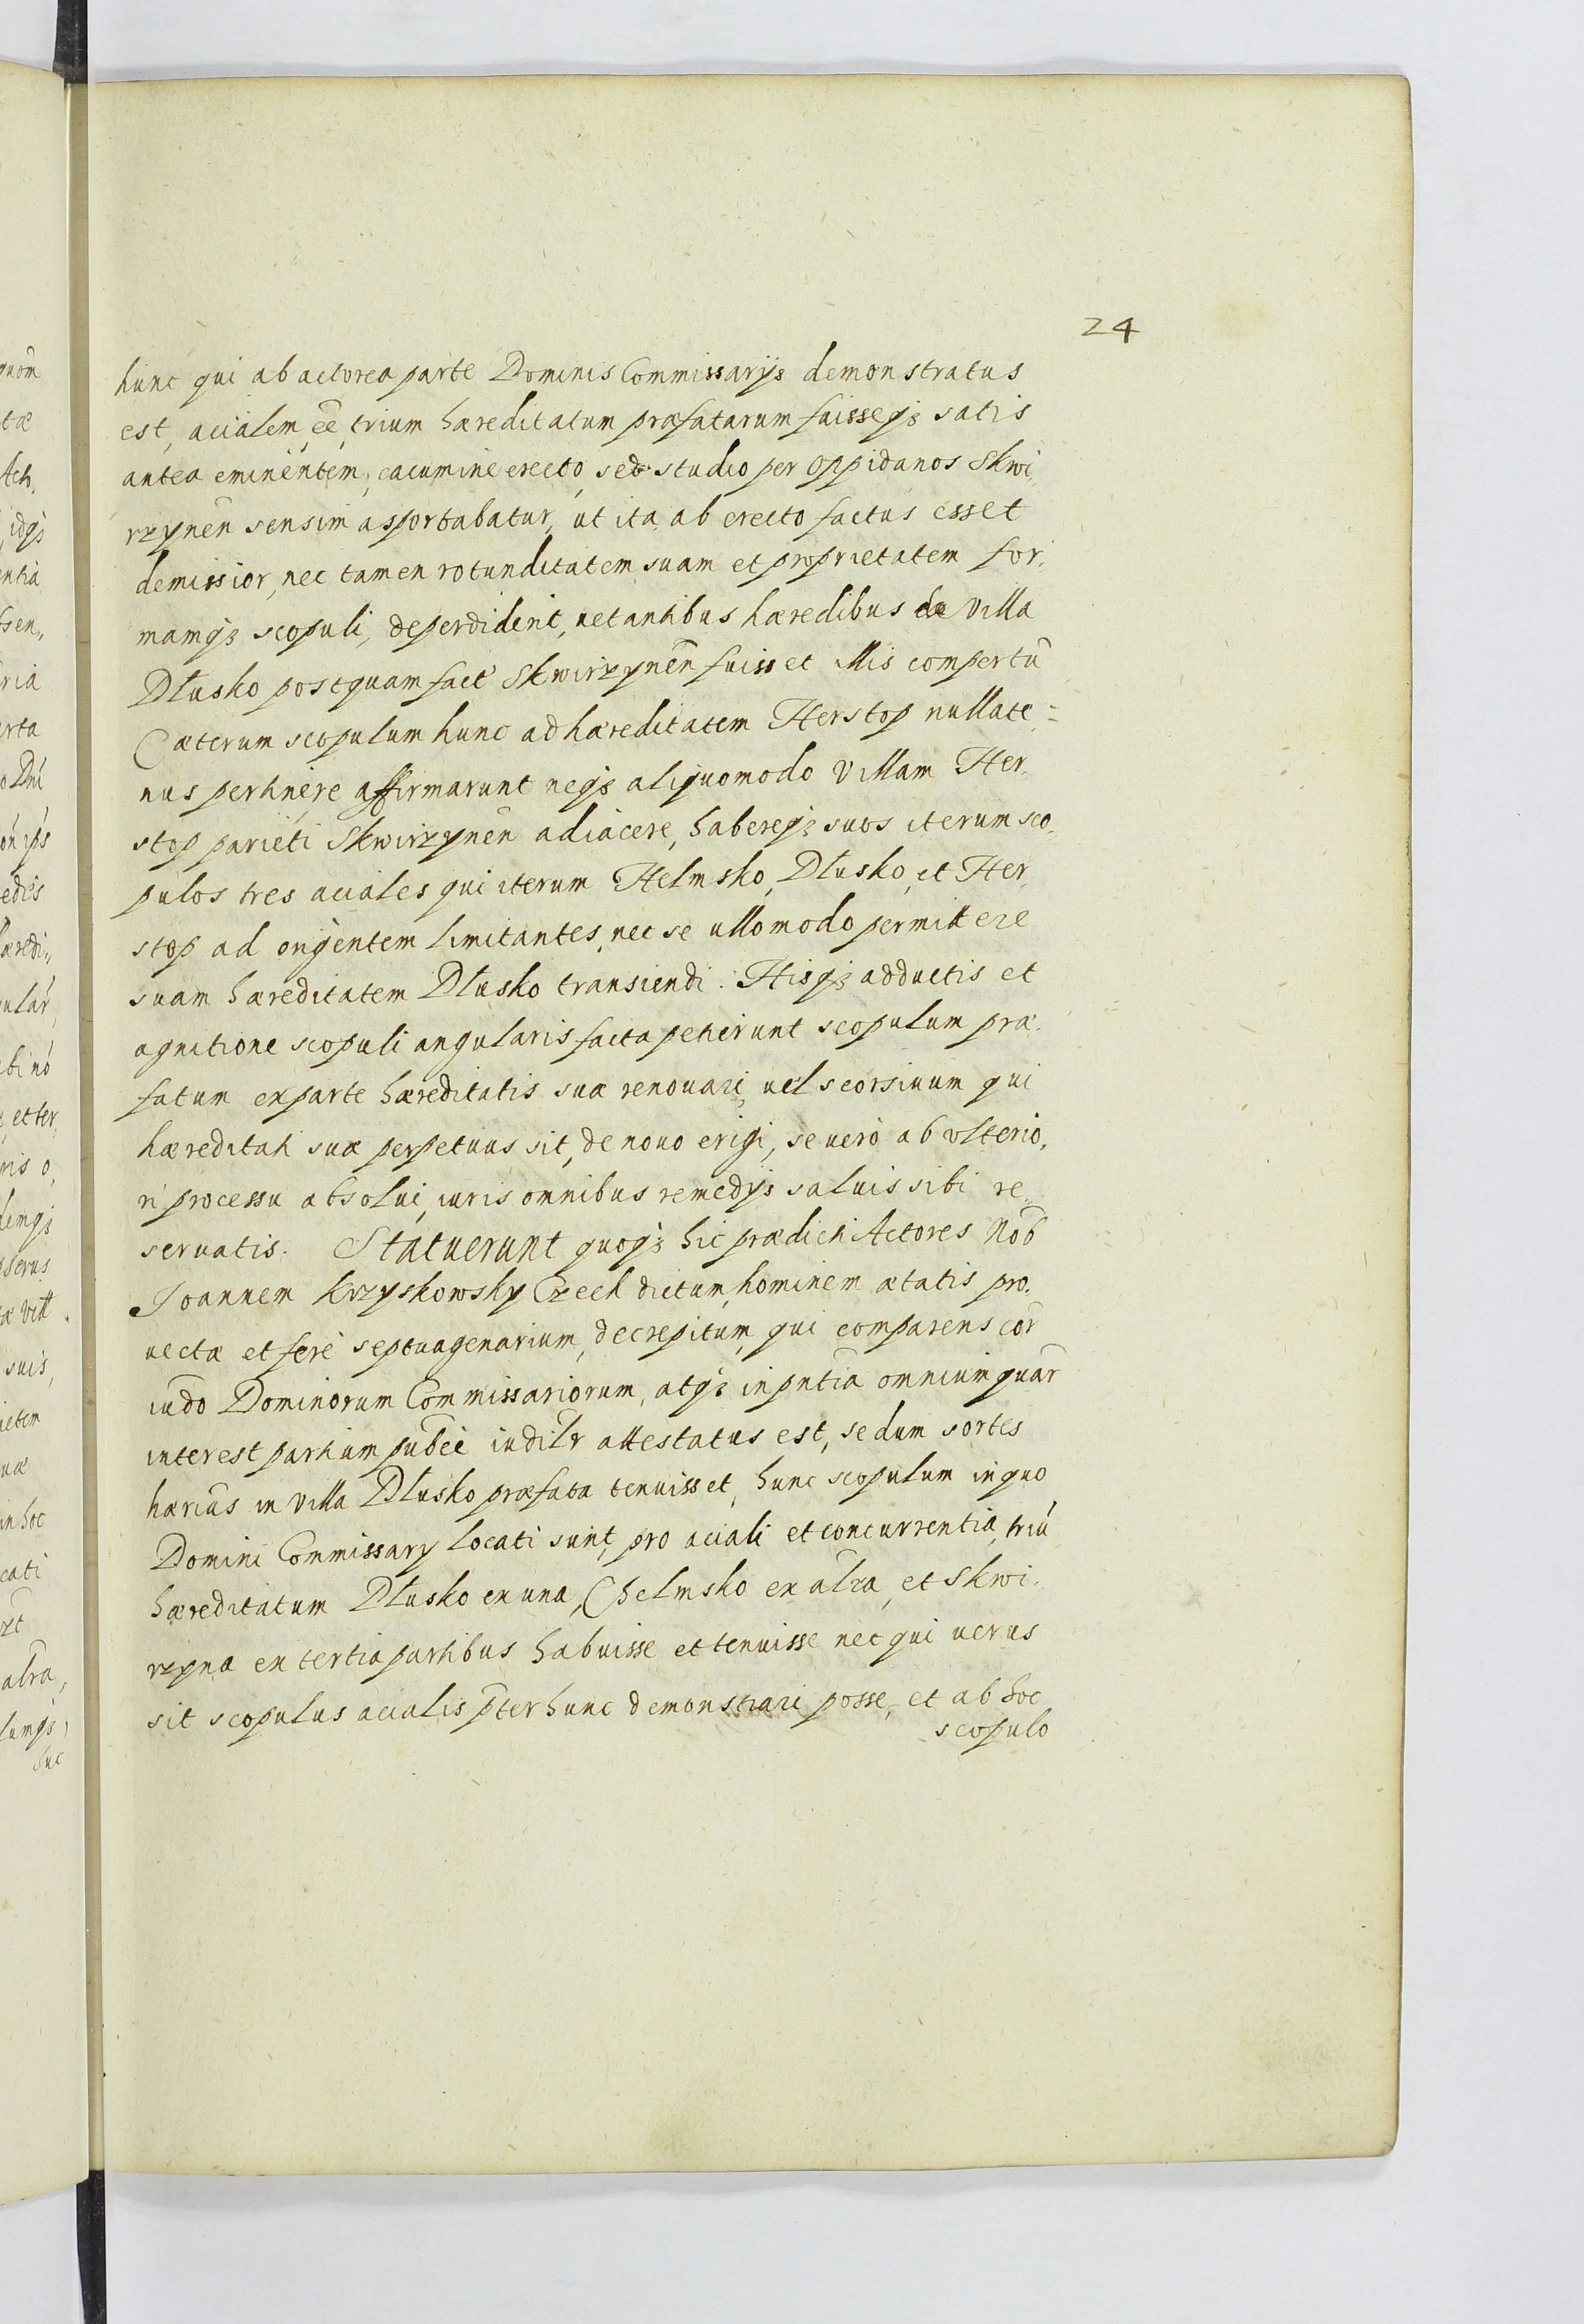 24
hunc qui ab actorea parte Dominis Commissarijs demonstratus
est, acialem ee̅, trium hæreditatum præfatarum fuisseqz satis
antea eminentem, cacumine erecto, sed studio per oppidanos Skwi„
rzynen̅ sensim asportabatur, ut ita ab erecto factus esset
demissior, nec tamen rotunditatem suam et proprietatem for„
mamqz scopuli, deperdiderit, uetantibus hæredibus de villa
Dłusko postquam fact̅ Skwirzynen̅ fuisset illis compertu̅
Cæterum scopulum hunc ad hæreditatem Herstop nullate=
nus pertinere affirmarunt neqz aliquomodo villam Her„
stop parieti Skwirzynen̅ adiacere, habereqz suos iterum sco„
pulos tres aciales qui iterum Helmsko, Dłusko, et Her„
stop ad origentem limitantes, nec se ullo modo permittere
suam hæreditatem Dłusko transiendi. Hisqz adductis et
agnitione scopuli angularis facta petierunt scopulum præ„
fatum ex parte hæreditatis suæ renouari, uel seorsiuum qui
hæreditati suæ perpetuus sit, de nouo erigi, se verò ab ulterio„
ri processu absolui, iuris omnibus remedijs saluis sibi re„
seruatis. Statuerunt quoqz hic prædicti Actores Nob̅
Joannem Krzyskowsky Czech dictum, hominem ætatis pro„
uectæ et ferè septuagenarium, decrepitum, qui comparens cor̅
iudo̅ Dominorum Commissariorum, atqz in pn̅tia omnium quar̅
interest partium pub̅ce iudil̅r attestatus est, se dum sortes
hærias̅ in villa Dłusko præfata tenuisset, hunc scopulum in quo
Domini Commissary locati sunt, pro aciali et concurrentia triu̅
hæreditatum Dłusko ex una, Chelmsko ex al̅ra, et Skwi„
rzyna ex tertia partibus habuisse et tenuisse nec qui uerus
sit scopulus acialis p̅ter hunc demonstrari posse, et ab hoc
scopulo